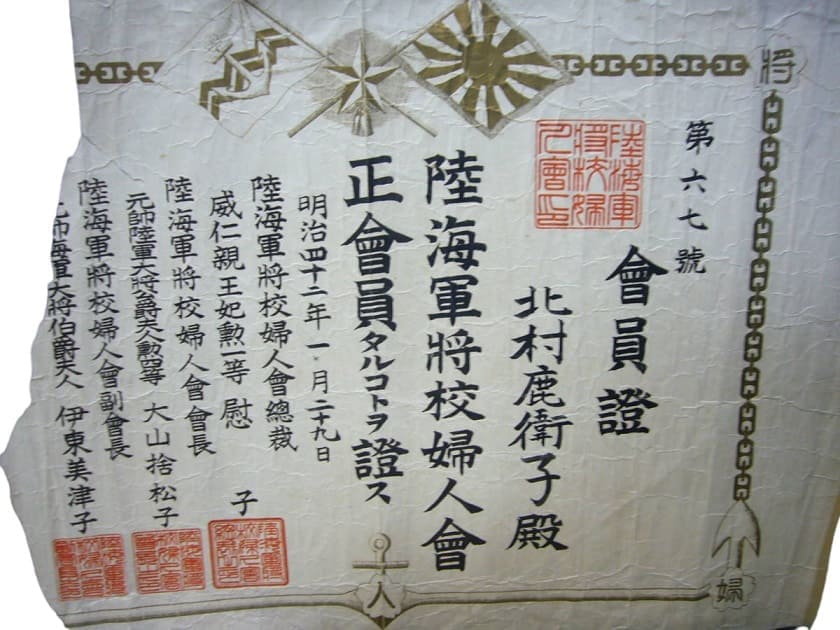 第六七號
會員證
北村鹿衛子殿
陸海軍將校婦人會
正會員タルコトヲ證ス
明治四十二年一月二十九日
陸海軍將校婦人會總裁
威仁親王妃勲一等 慰子
陸海軍將校婦人會會長
元帥陸軍大將公爵夫人勲四等 大山捨松子
陸海軍將校婦人會副會長
元帥海軍大將伯爵夫人 伊東美津子
陸海軍將校婦人會印
將
婦
人